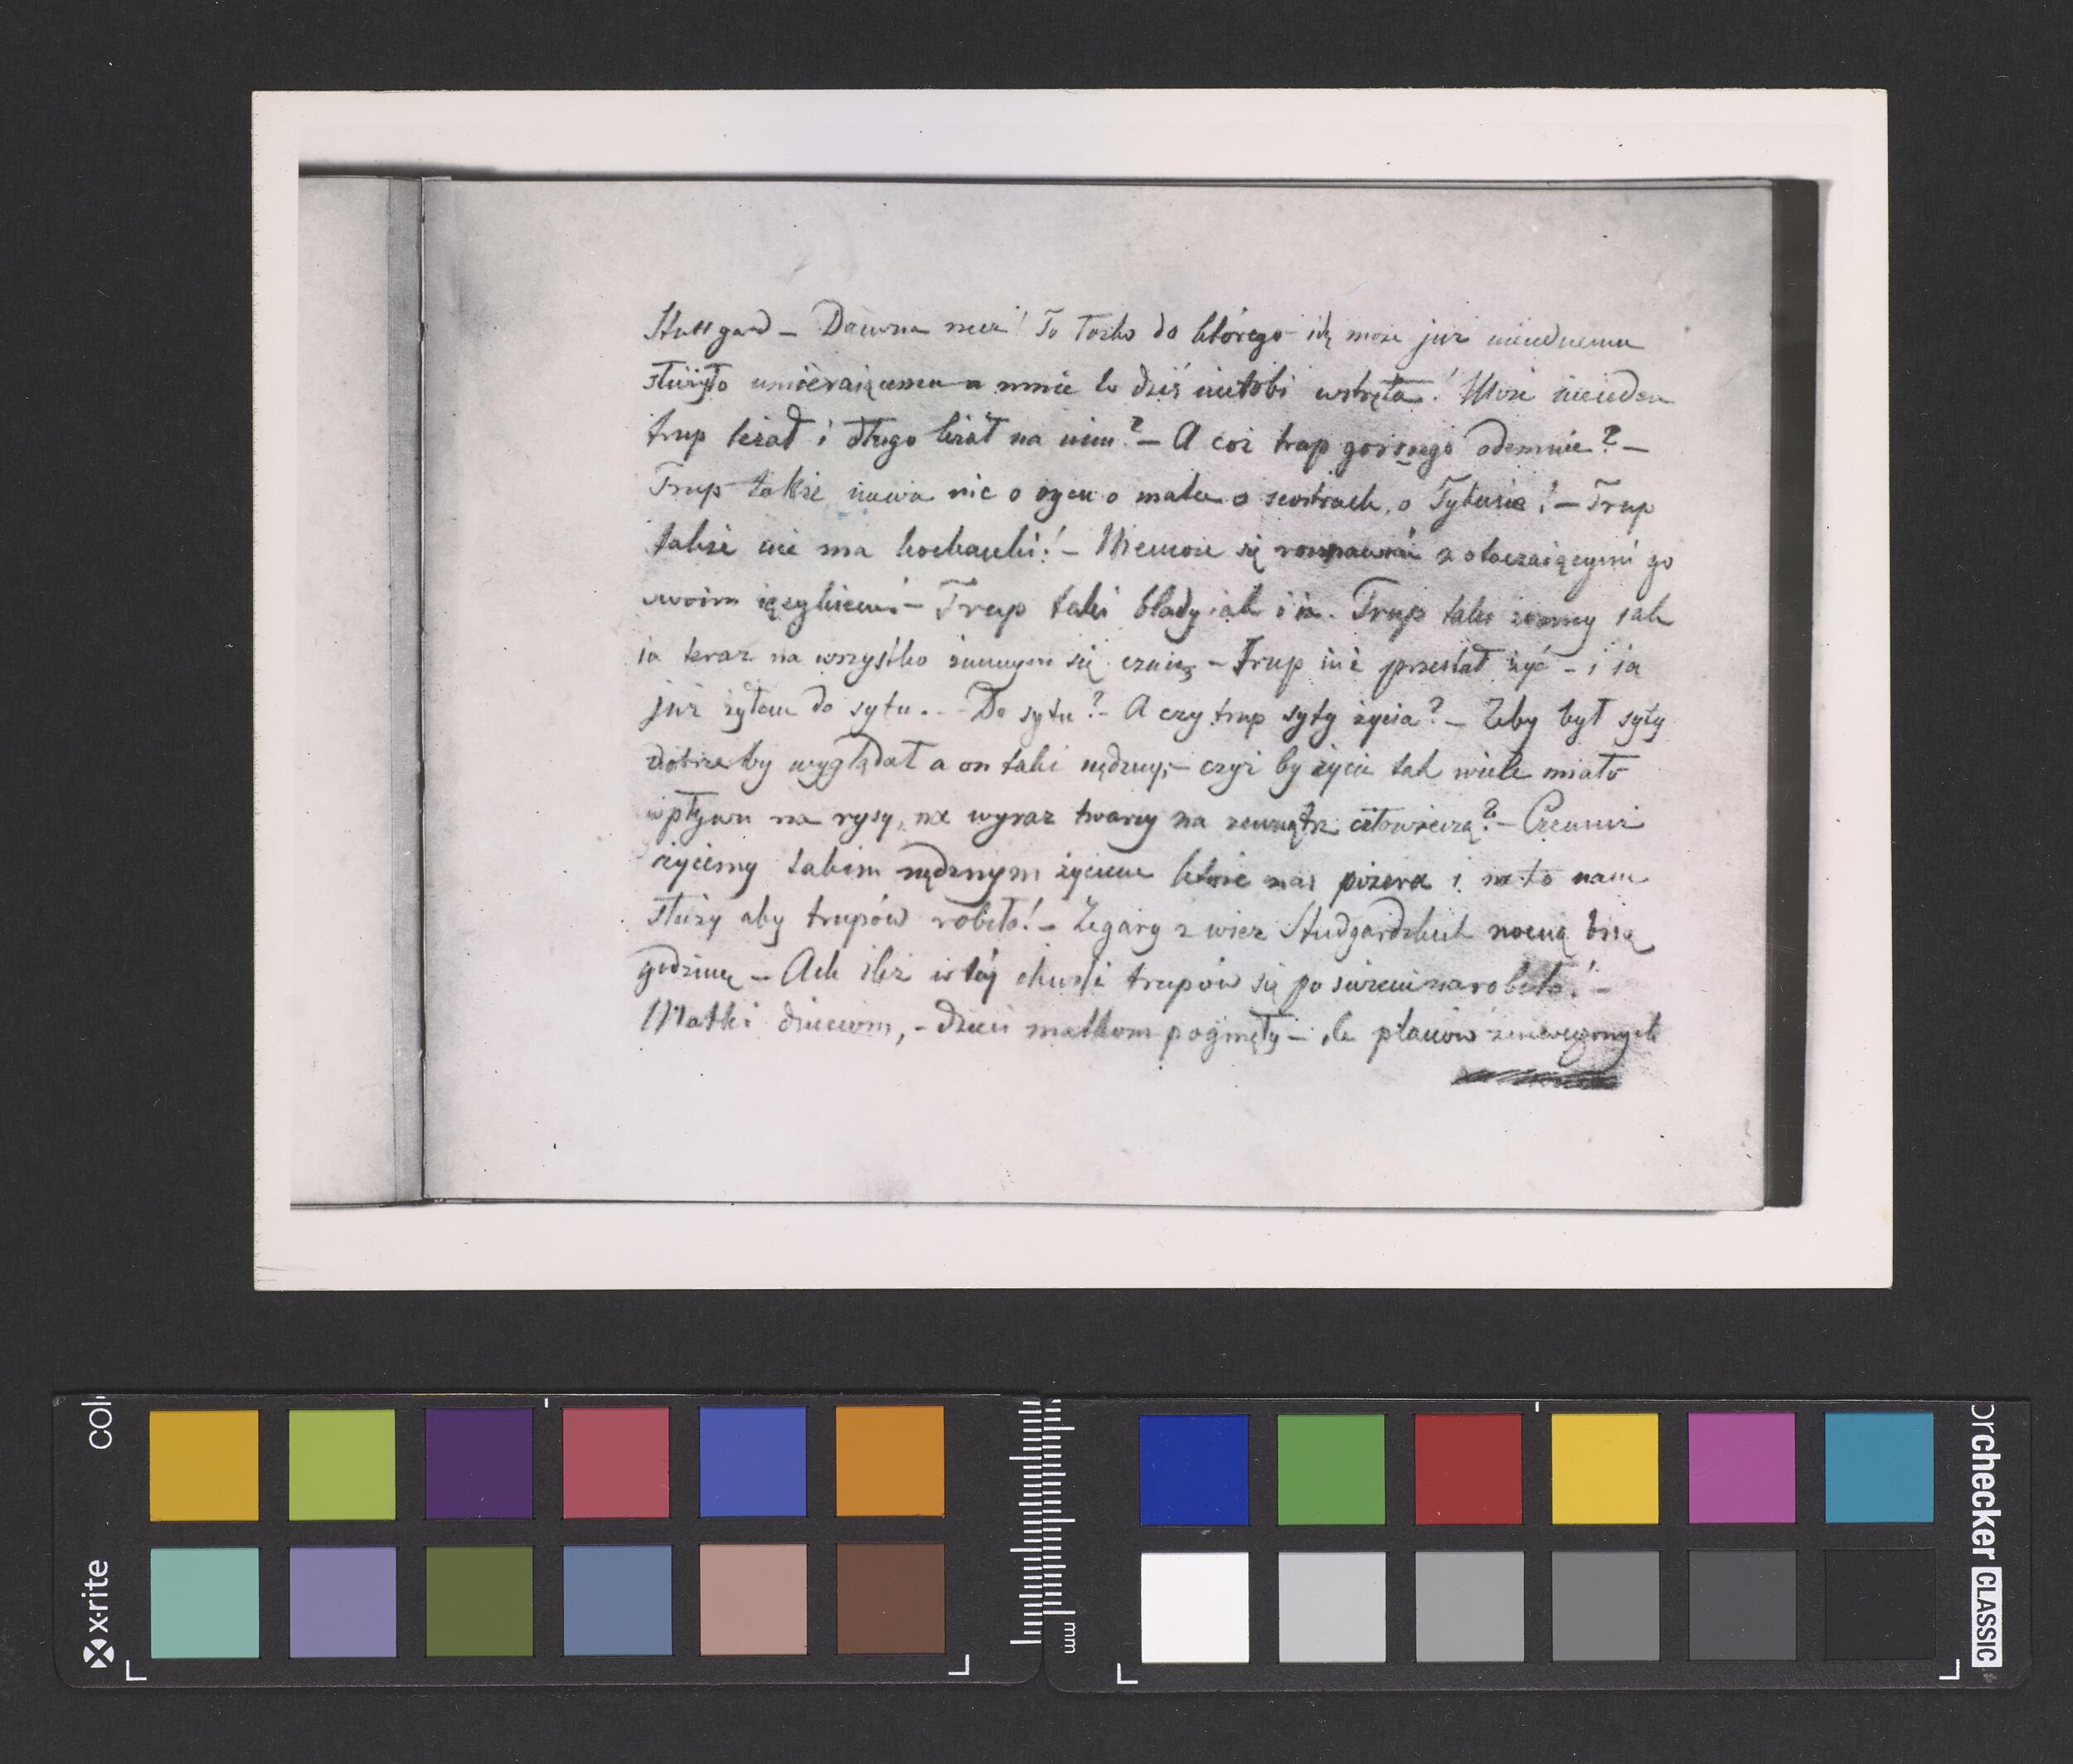 Stuttgard – Dziwna rzecz! To łożko do którego idę może już niejednemu
służyło umieraiącemu a mnie to dziś nierobi wstrętu! Może nieieden
trup leżał i długo leżał na nim? – A coż trup gorszego odemnie? –
Trup także niewie nic o oycu o matce o siostrach, o Tytusie! – Trup
także nie ma kochanki! – Niemoże się rozmawiać z otaczaiącymi go
swoim ięzykiem! – Trup taki blady iak i ia. Trup taki zimny iak
ia teraz na wszystko zimnym się czuię – Trup iuż przestał żyć – i ia
już żyłem do sytu.. – Do sytu? – A czy trup syty życia? – Żeby był syty
dobrze by wyglądał a on taki nędzny; – czyż by życie tak wiele miało
wpływu na rysy, na wyraz twarzy na zewnątrz człowieczą? – Czemuż
żyiemy takim nędznym życiem które nas pożera i na to nam
służy aby trupów robiło! – Zegary z wież Studgardzkich nocną biią
godzinę – Ach ileż w téj chwili trupów się po świecie narobiło! –
Matki dzieciom, – dzieci matkom poginęły – ile planów zniweczonych